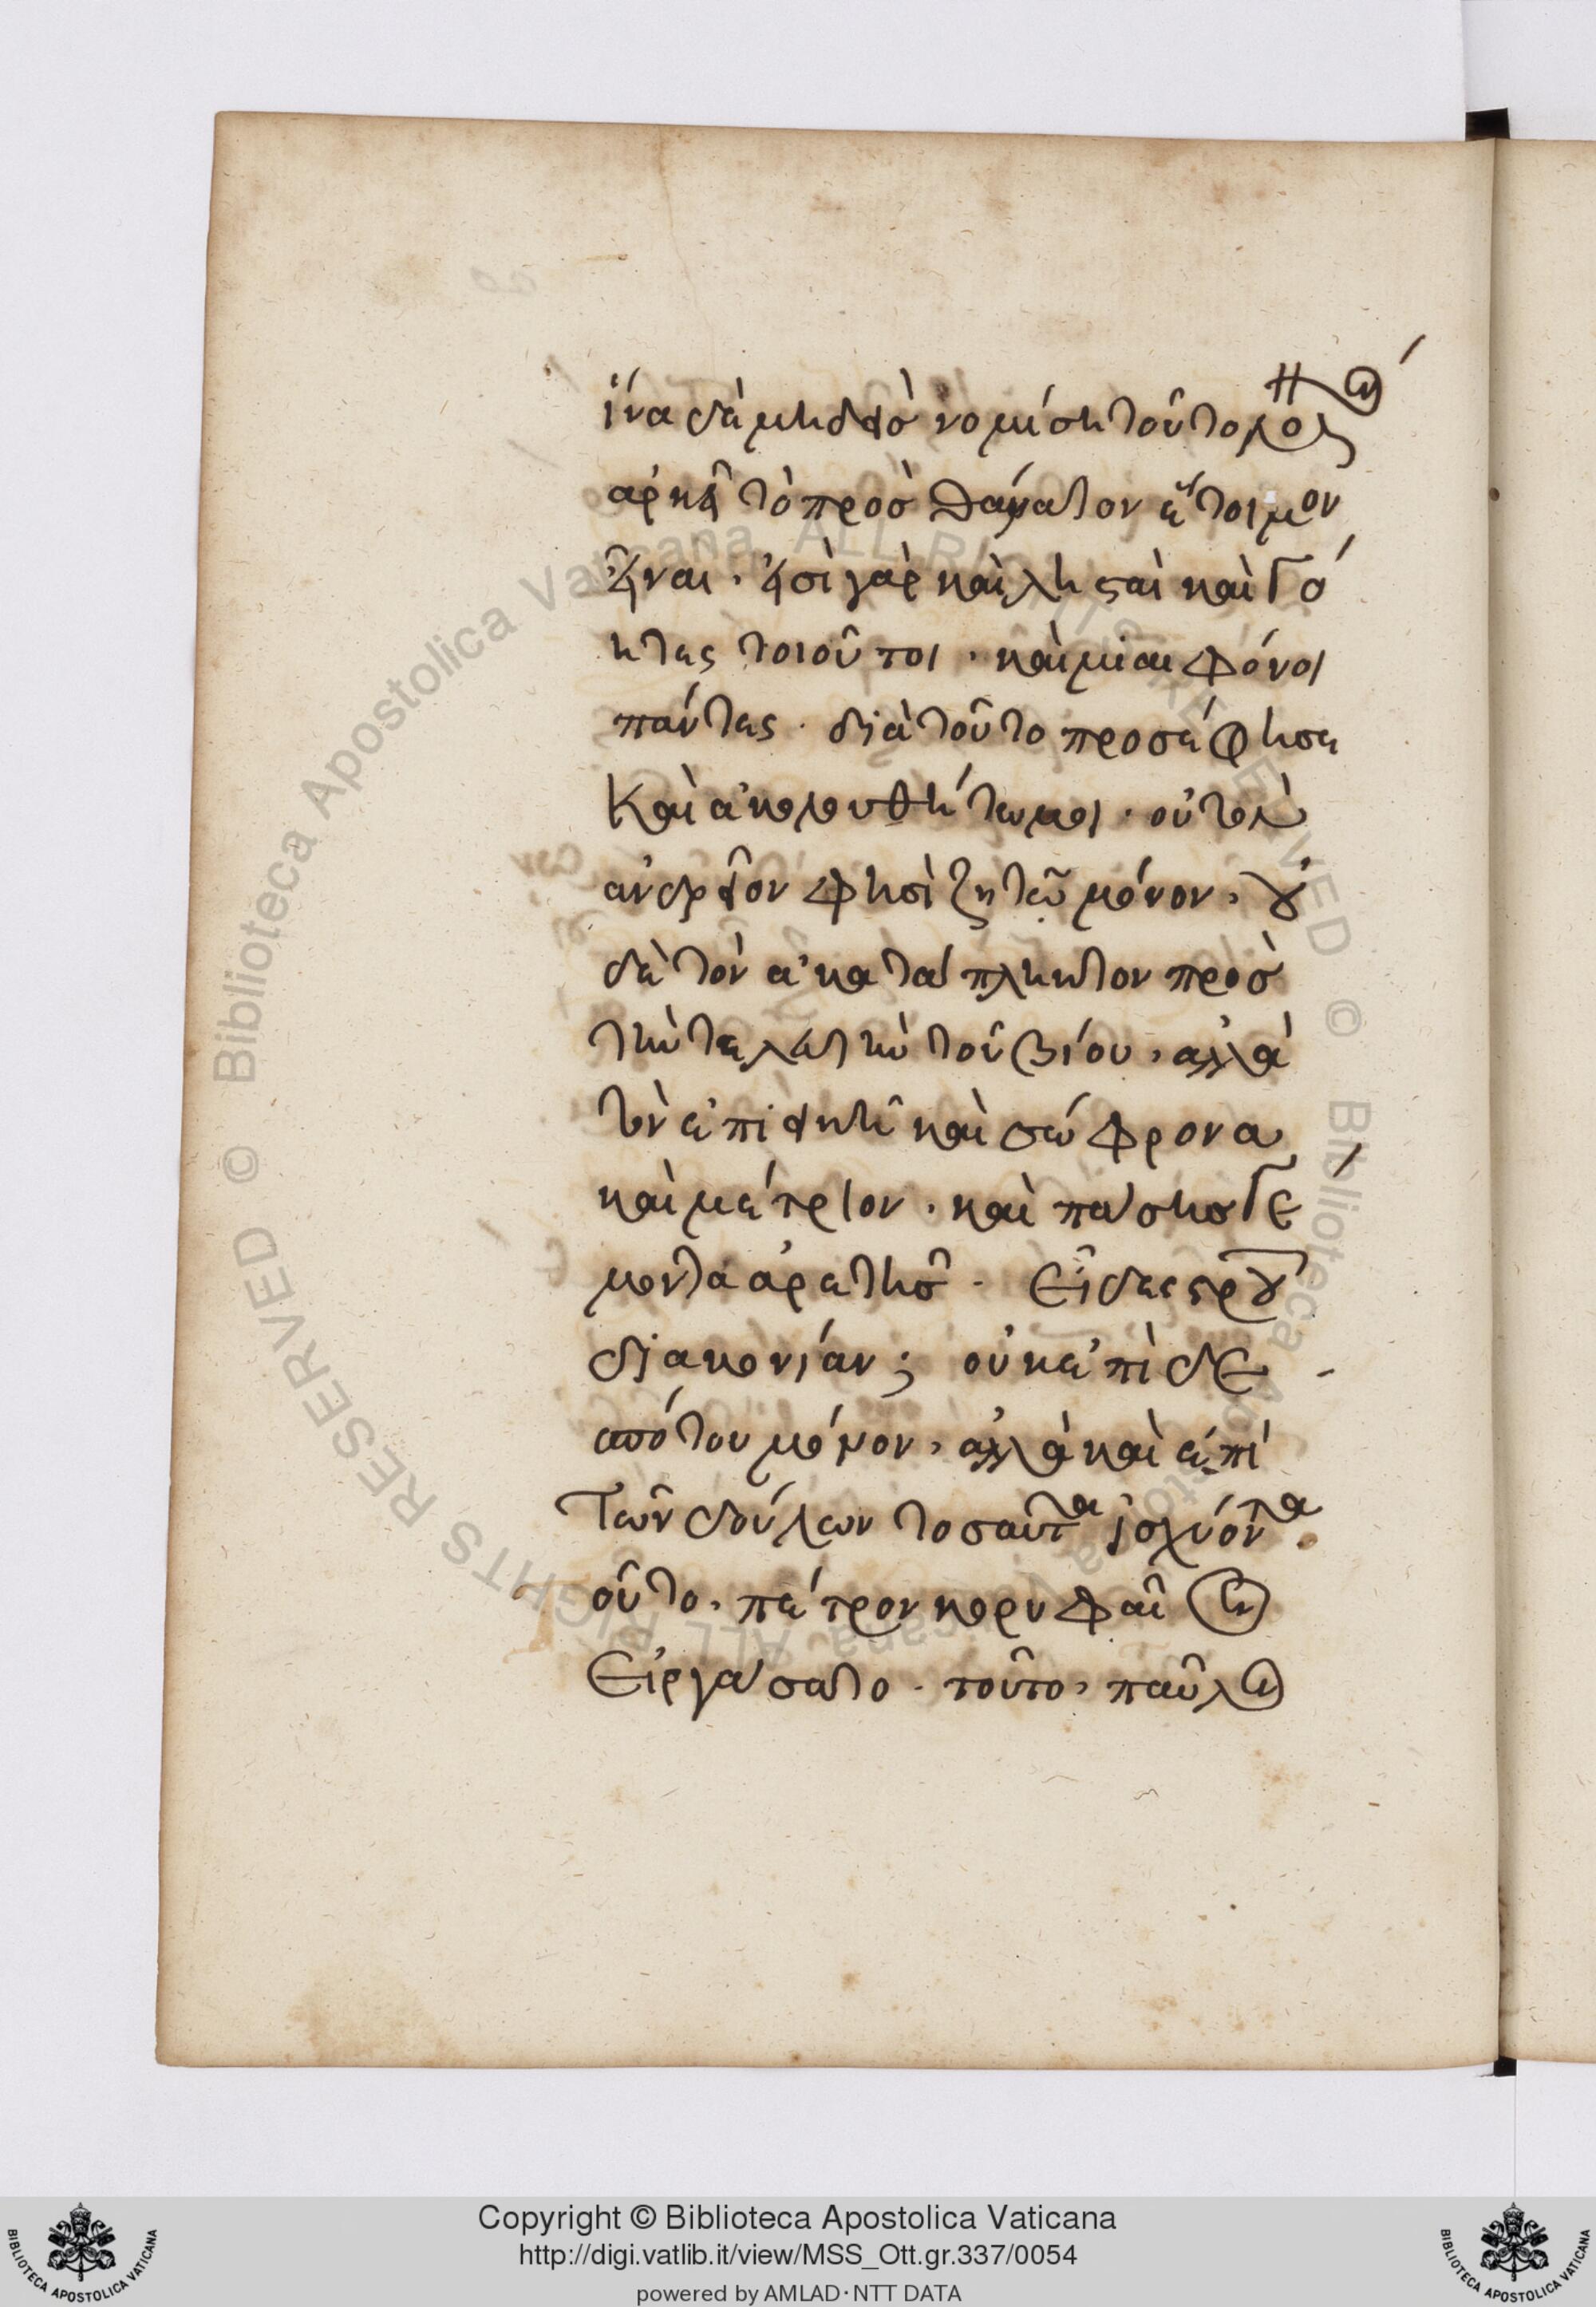 ἵνα δὲ μηδεὶσ νομίση τοῦτο μόνον
ἀρκεῖ τὸ πρὸσ θάνατον ἕτοιμον
εἶναι. εἰσὶ γὰρ καὶ λησταὶ καὶ γό
ητες τοιοῦτοι. καὶ μιαιφόνοι
πάντες. διὰ τοῦτο προσέθησε
Καὶ ἀκολουθήτω μοι. οὐ τὸν
ἀνδρεῖον φησὶ ζητῶ μόνον, οὐ
δὲ τὸν ἀκατάπληκτον πρὸσ
τὴν τελευτὴν τοῦ βίου, ἀλλὰ
τὸν ἐπιεικῆ καὶ σώφρονα
καὶ μέτριον. καὶ πάσησ γέ
μοντα ἀρετῆσ. Εἶδες σταυροῦ
διακονίαν; οὐκ ἐπὶ δε
σπότου μόνον, ἀλλὰ καὶ ἐπὶ
Τῶν δούλων τοσαῦτα ἰσχύοντα.
οὗτο. πέτρον κορυφαῖον
Εἰργάσατο. τοῦτο, παῦλον
Copyright © Biblioteca Apostolica Vaticana
http://digi.vatlib.it/view/MSS_Ott.gr.337/0054
powered by AMLAD·NTT DATA
BIBLIOTECA APOSTOLICA VATICANA
BIBLIOTECA APOSTOLICA VATICANA
© Biblioteca Apostolica Vaticana ALL RIGHTS RESERVED © Biblioteca Apostolica Vaticana ALL RIGHTS RESERVED